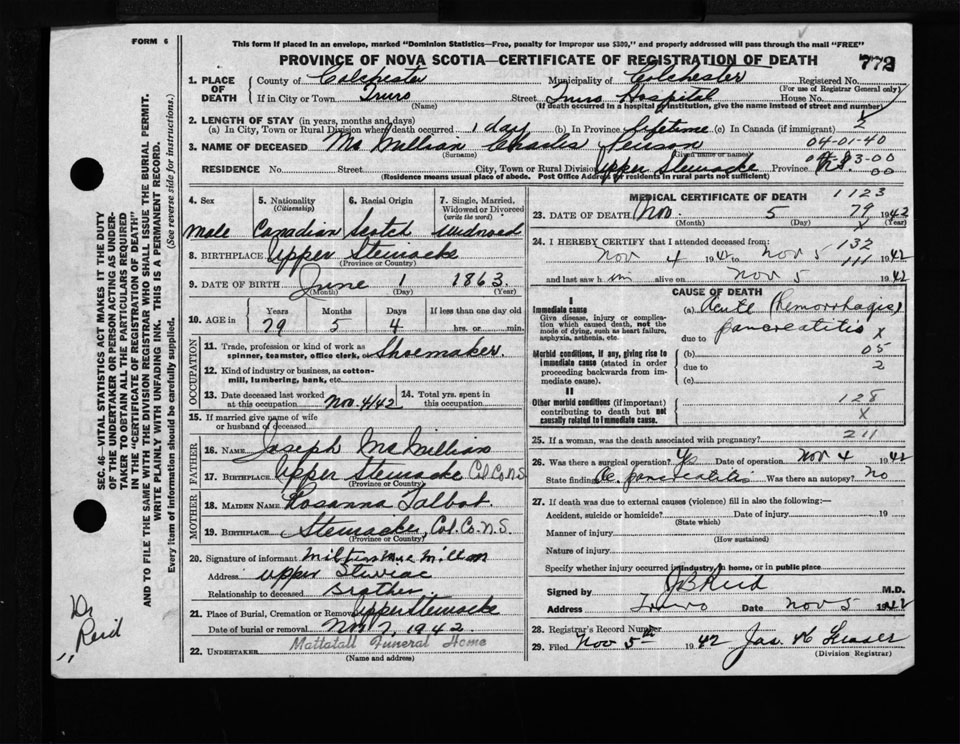 FORM 6
This form if placed in an envelope, marked "Dominion Statistics—Free, penalty for improper use $300," and properly addressed will pass through the mail "FREE"
PROVINCE OF NOVA SCOTIA—CERTIFICATE OF REGISTRATION OF DEATH 772
1. PLACE OF DEATH County of Colchester Municipality of Colchester Registered No.
(For use of Registrar General only)
If in City or Town Truro Street Truro Hospital House No.
(Name) (If death occurred in a hospital or institution, give the name instead of street and number)
2. LENGTH OF STAY (in years, months and days) 3
(a) In City, Town or Rural Division where death occurred 1 day (b) In Province lifetime (c) In Canada (if immigrant)
3. NAME OF DECEASED McMillian Charles 04-01-40
(Surname) (Given name or names)
RESIDENCE No. Street City, Town or Rural Division Upper Stewiacke Province N.S. 00
(Residence means usual place of abode. Post Office Address for residents in rural parts not sufficient)
4. Sex Male
5. Nationality (Citizenship) Canadian
6. Racial Origin Scotch
7. Single, Married, Widowed or Divorced (write the word) Widowed
8. BIRTHPLACE Upper Stewiacke
(Province or Country)
9. DATE OF BIRTH June 1 1863
(Month) (Day) (Year)
10. AGE in Years Months Days If less than one day old
79 5 4 hrs. or min.
OCCUPATION
11. Trade, profession or kind of work as spinner, teamster, office clerk, etc. Shoemaker.
12. Kind of industry or business, as cotton-mill, lumbering, bank, etc.
13. Date deceased last worked at this occupation Nov. 4/42 14. Total yrs. spent in this occupation
15. If married give name of wife or husband of deceased
FATHER
16. NAME Joseph McMillian
17. BIRTHPLACE Upper Stewiacke Col. Co. N.S.
(Province or Country)
MOTHER
18. MAIDEN NAME Rosanna Talbot
19. BIRTHPLACE Stewiacke, Col. Co. N.S.
(Province or Country)
20. Signature of informant
Address Upper
Relationship to deceased Brother
21. Place of Burial, Cremation or Removal Upper Stewiacke
Date of burial or removal Nov 7, 1942.
22. UNDERTAKER Mattatall Funeral Home
(Name and address)
MEDICAL CERTIFICATE OF DEATH 1123
23. DATE OF DEATH Nov. 5 79 1942
(Month) (Day) X
24. I HEREBY CERTIFY that I attended deceased from: 132
Nov 4 1942 to Nov 5 1942 111
and last saw h im alive on Nov 5 1942
CAUSE OF DEATH
I
Immediate cause
Give disease, injury or complication which caused death, not the mode of dying, such as heart failure, asphyxia, asthenia, etc.
(a) Acute (Hemorrhagic) pancreatitis X
due to
Morbid conditions, if any, giving rise to immediate cause (stated in order proceeding backwards from immediate cause).
(b) 05
due to 2
(c)
II
Other morbid conditions (if important) contributing to death but not causally related to immediate cause.
128
X
25. If a woman, was the death associated with pregnancy? 211
26. Was there a surgical operation? Yes Date of operation Nov 4 1942
State findings Ac pancreatitis Was there an autopsy? No
27. If death was due to external causes (violence) fill in also the following:—
Accident, suicide or homicide? Date of injury 19
(State which)
Manner of injury
(How sustained)
Nature of injury
Specify whether injury occurred in industry, in home, or in public place
Signed by JB Reid M.D.
Address Truro Date Nov 5 1942
28. Registrar's Record Number
29. Filed Nov 5th 1942 Jas
(Division Registrar)
SEC. 46—VITAL STATISTICS ACT MAKES IT THE DUTY
OF THE UNDERTAKER OR PERSON ACTING AS UNDER-
TAKER TO OBTAIN ALL THE PARTICULARS REQUIRED
IN THE "CERTIFICATE OF REGISTRATION OF DEATH"
AND TO FILE THE SAME WITH THE DIVISION REGISTRAR WHO SHALL ISSUE THE BURIAL PERMIT.
WRITE PLAINLY WITH UNFADING INK. THIS IS A PERMANENT RECORD.
Every item of information should be carefully supplied. (See reverse side for instructions.)
Dr
Reid